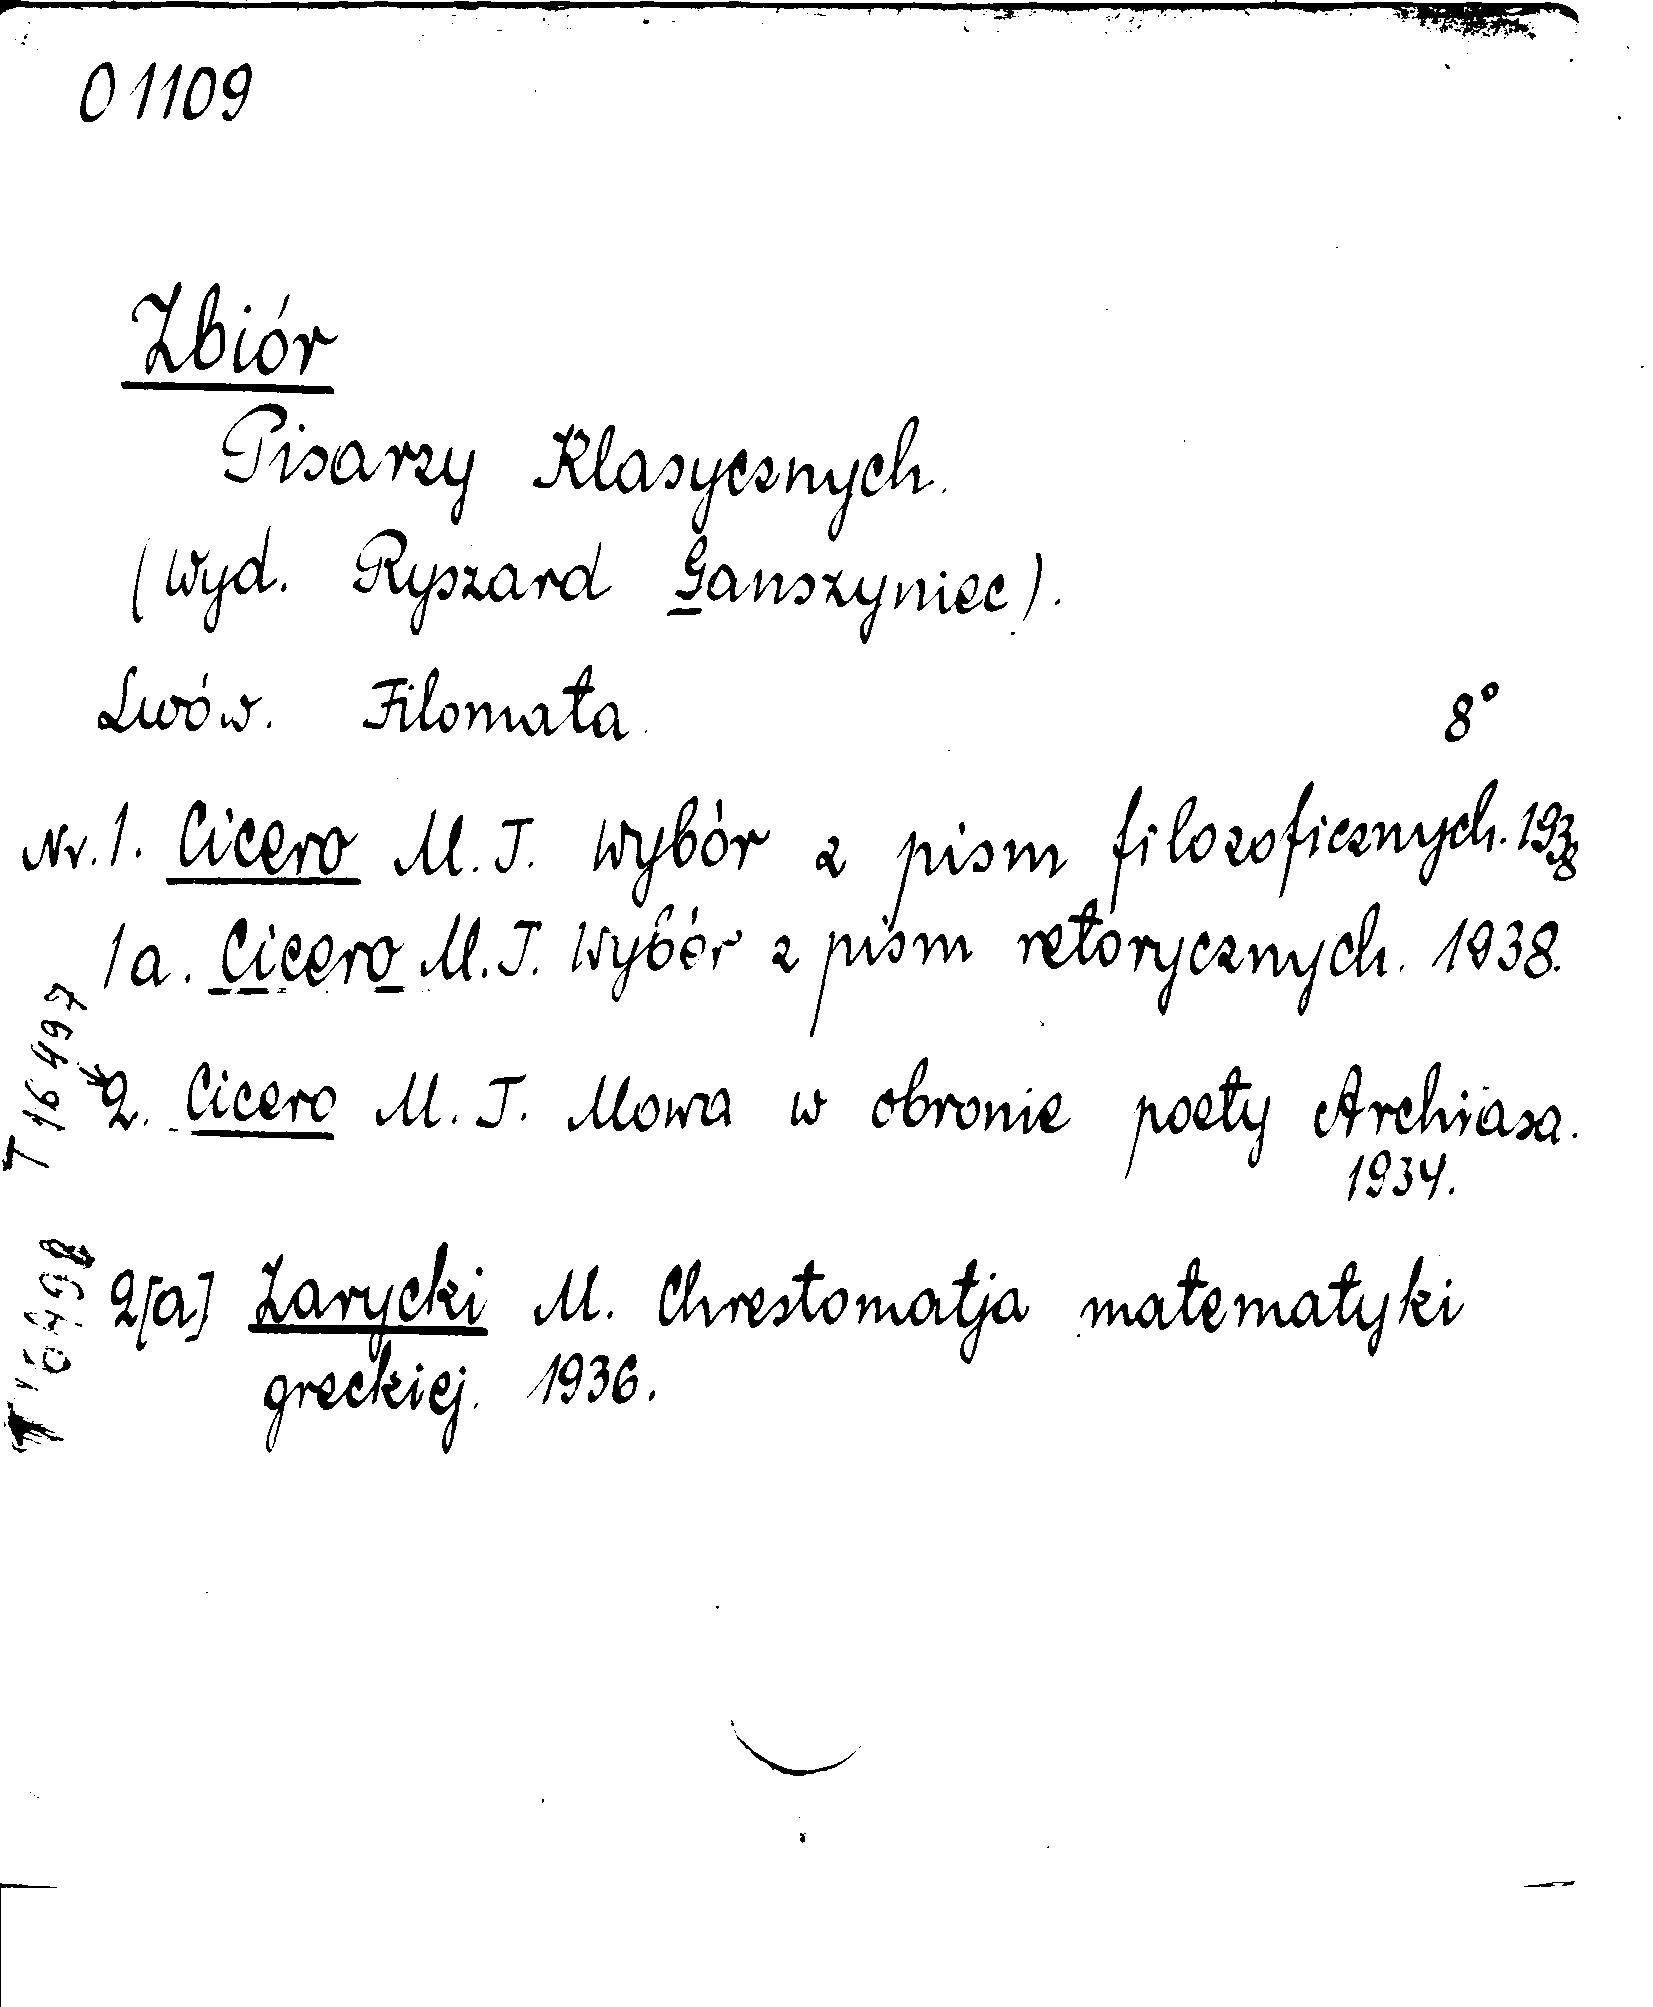 01109
Zbiór
Pisarzy Klasycznych.
(Wyd. Ryszard Ganszyniec).
Lwów. Filomata. 8°
Nr. 1. Cicero M. T. Wybór z pism filozoficznych. 1938
1a. Cicero M. T. Wybór z pism retorycznych. 1938.
T 16497
2. Cicero M. T. Mowa w obronie poety Archiasa.
1934.
T 16498
2[a] Zarycki M. Chrestomatja matematyki
greckiej. 1936.